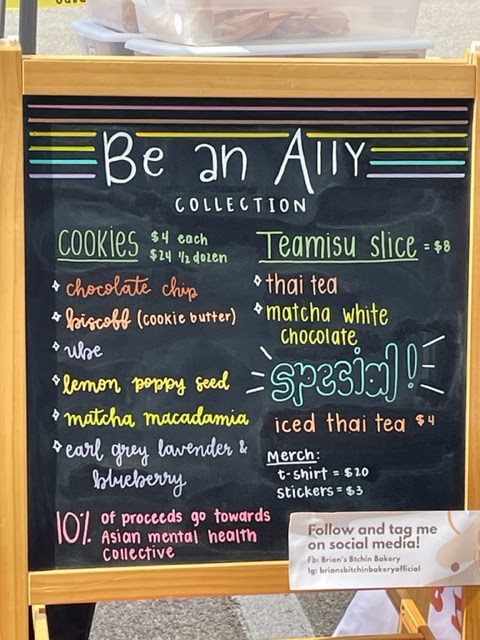 Be an Ally
COLLECTION
COOKIES $4 each
$24 1/2 dozen
chocolate chip
biscoff (cookie butter)
ube
lemon poppy seed
matcha macadamia
earl grey lavender &
blueberry
Teamisu slice = $8
thai tea
matcha white
chocolate
special!
iced thai tea $4
Merch:
t-shirt = $20
stickers = $3
10% of proceeds go towards
Asian mental health
Collective
Follow and tag me
on social media!
Fb: Brian's Btchin Bakery
Ig: briansbitchinbakeryofficial